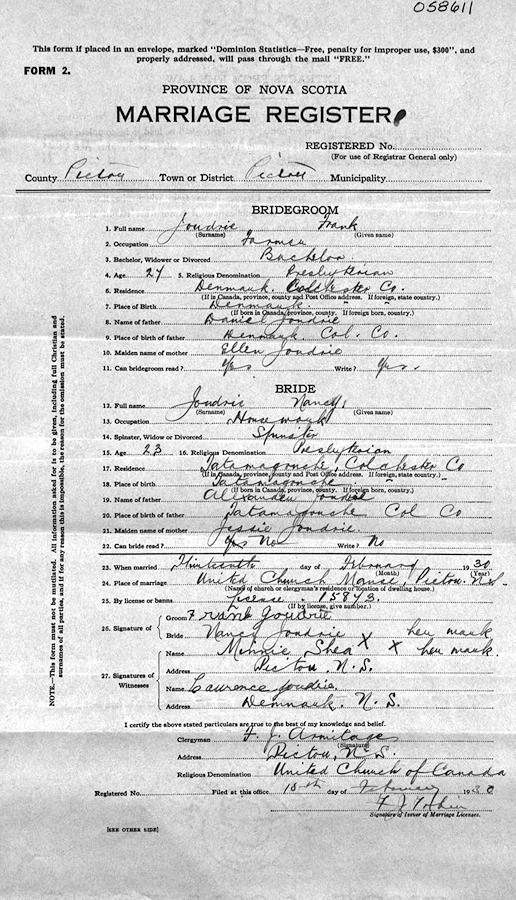 058611
This form if placed in an envelope, marked "Dominion Statistics—Free, penalty for improper use, $300", and
properly addressed, will pass through the mail "FREE."
FORM 2.
PROVINCE OF NOVA SCOTIA
MARRIAGE REGISTER
REGISTERED No.
(For use of Registrar General only)
County Pictou Town or District Pictou Municipality
BRIDEGROOM
1. Full name Joudrie Frank
(Surname) (Given name)
2. Occupation Farmer
3. Bachelor, Widower or Divorced Bachelor
4. Age 24 5. Religious Denomination Presbyterian
6. Residence Denmark. Colchester Co.
(If in Canada, province, county and Post Office address. If foreign, state country.)
7. Place of Birth Denmark.
(If born in Canada, province, county. If foreign born, country.)
8. Name of father Daniel Joudrie
9. Place of birth of father Denmark, Col. Co.
10. Maiden name of mother Ellen Joudrie
11. Can bridegroom read? Yes Write? Yes.
BRIDE
12. Full name Joudrie Nancy
(Surname) (Given name)
13. Occupation Housework
14. Spinster, Widow or Divorced Spinster
15. Age 23 16. Religious Denomination Presbyterian
17. Residence Tatamagouche, Colchester Co
(If in Canada, province, county and Post Office address. If foreign, state country.)
18. Place of birth Tatamagouche
(If born in Canada, province, county. If foreign born, country.)
19. Name of father Alexander Joudrie
20. Place of birth of father Tatamagouche Col Co
21. Maiden name of mother Jessie Joudrie.
22. Can bride read? Yes No Write? No
23. When married Thirteenth day of February 1930
(Month) (Year)
24. Place of marriage United Church Manse, Pictou. N.S.
(Name of church or clergyman's residence or location of dwelling house.)
25. By license or banns License 15843.
(If by license, give number.)
26. Signature of
Groom Frank Joudrie
Bride Nancy Joudrie X her mark
27. Signatures of Witnesses
Name Minnie Shea X her mark.
Address Pictou, N.S.
Name Laurence Joudrie.
Address Denmark, N.S.
I certify the above stated particulars are true to the best of my knowledge and belief.
Clergyman F. J. Armitage
(Signature)
Address Pictou, N.S.
Religious Denomination United Church of Canada
Registered No. Filed at this office 15th day of February 1930
Signature of Issuer of Marriage Licenses.
[SEE OTHER SIDE]
NOTE.—This form must not be mutilated. All information asked for is to be given, including full Christian and
surnames of all parties, and if for any reason this is impossible, the reason for the omission must be stated.